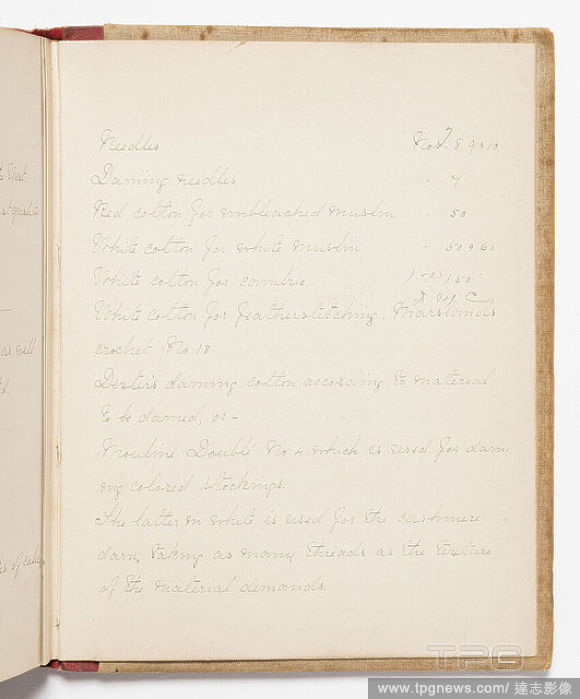 Needles Nos 7. 8. 9 & 10
Darning needles " 4
Red cotton for unbleached muslin " 50
White cotton for white muslin " 50 & 60
White cotton for cambric 150
D. M. C
White cotton for featherstitching, Marsland's
crochet No 18
Dexter's darning cotton according to material
to be darned, or -
Mouliné Doublé No 4 which is used for darn-
ing colored stockings.
The latter in white is used for the cashmere
darn, taking as many threads as the texture
of the material demands.
as well
TPG
www.tpgnews.com / 達志影像